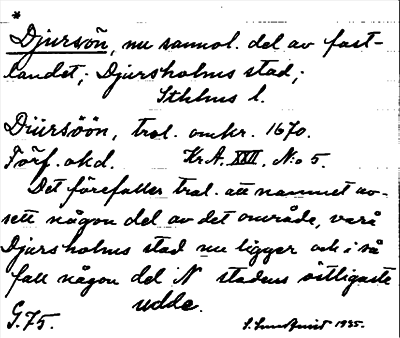 *
Djursön, nu sannol. del av fast-
landet; Djursholms stad;
Sthlms l.
Diursöön, trol. omkr. 1670.
Förf. okd. Kr.A. XXII, No 5.
Det förefaller trol. att namnet av-
sett någon del av det område, varå
Djursholms stad nu ligger och i så
fall någon del N stadens östligaste
udde.
G.75. S. Sundqvist 1935.